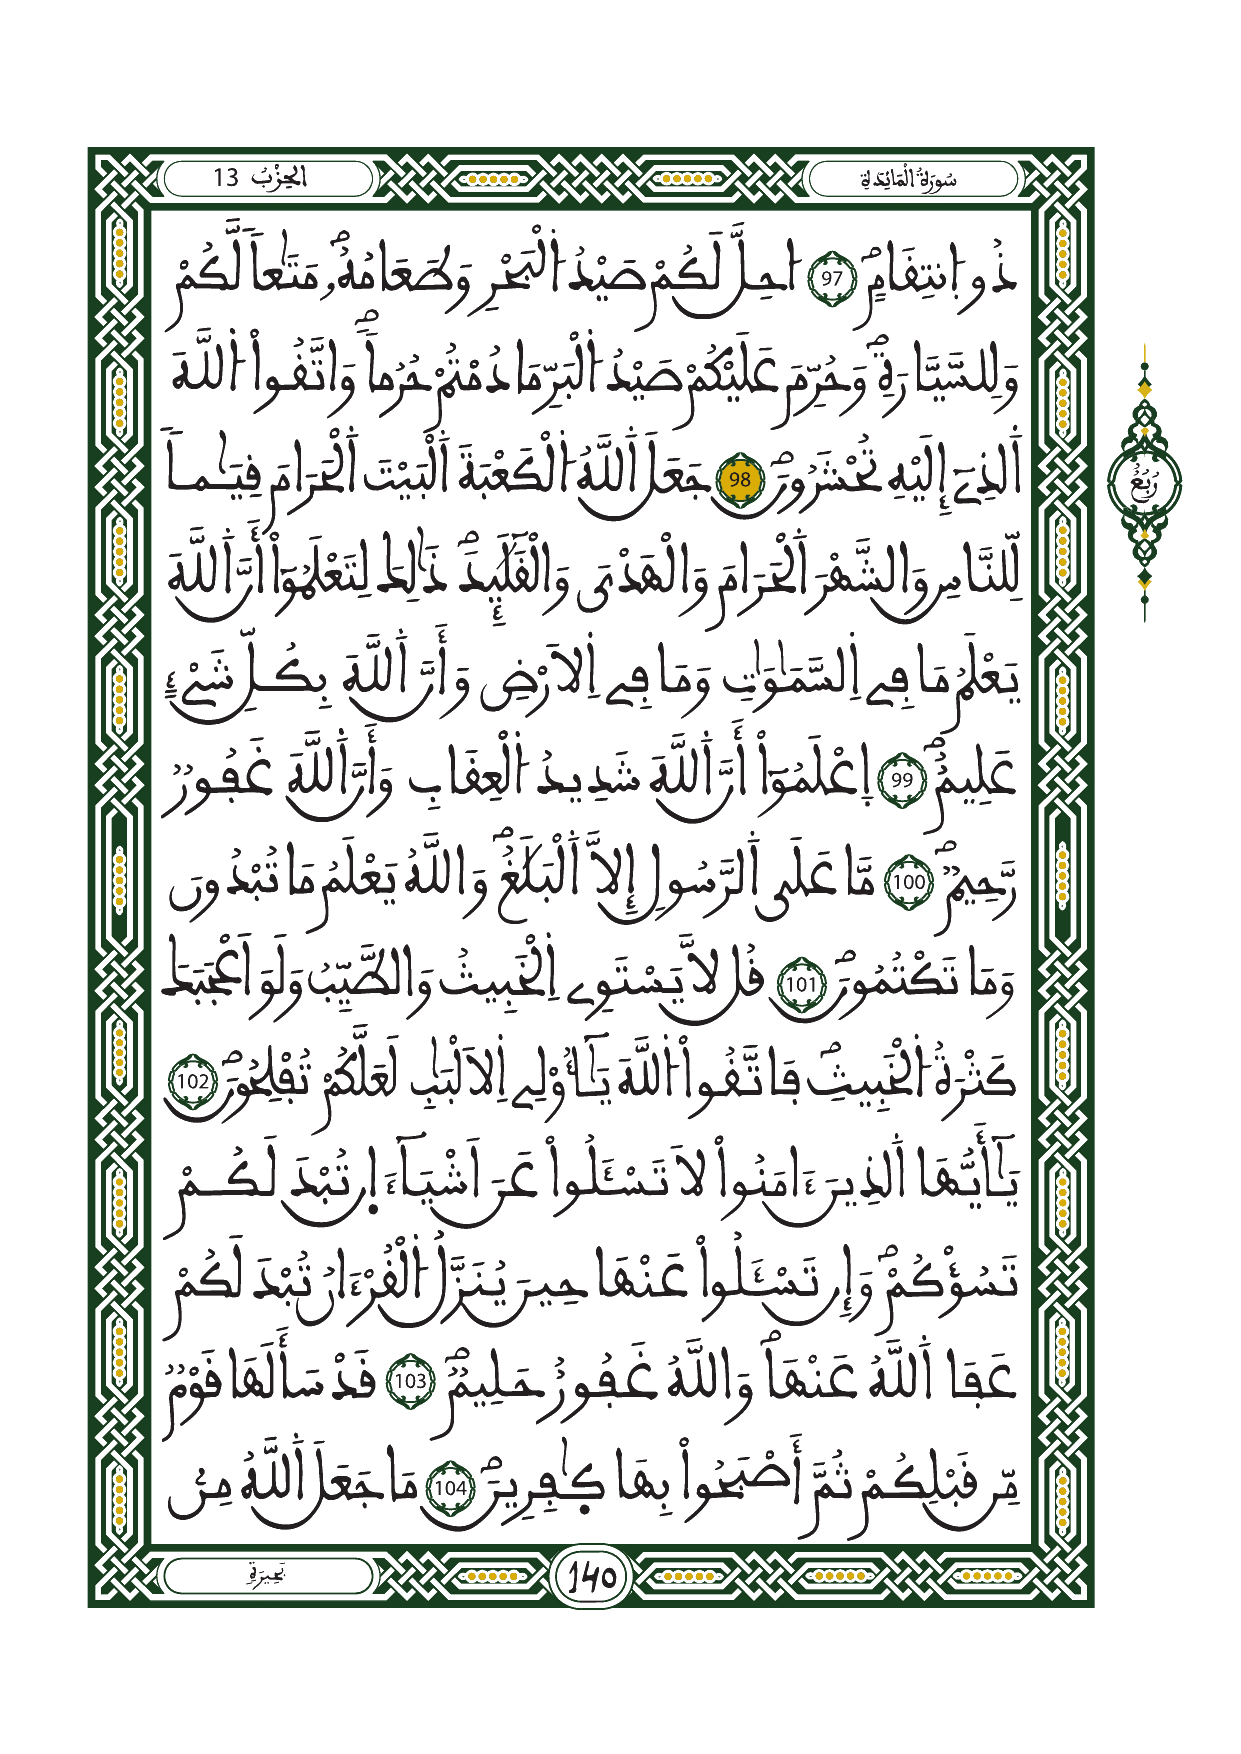 سُورَةُ الْمَائِدَةِ
الحِزْبُ 13
ذُو اُ۪نتِقَامٍۖ 97 ا۟حِلَّ لَكُمْ صَيْدُ اُ۬لْبَحْرِ وَطَعَامُهُۥۖ مَتَٰعاٗ لَّكُمْ
وَلِلسَّيَّارَةِۖ وَحُرِّمَ عَلَيْكُمْ صَيْدُ اُ۬لْبَرِّ مَا دُمْتُمْ حُرُماٗۖ وَاتَّقُواْ اُ۬للَّهَ
اَ۬لذِےٓ إِلَيْهِ تُحْشَرُونَۖ 98 جَعَلَ اَ۬للَّهُ اُ۬لْكَعْبَةَ اَ۬لْبَيْتَ اَ۬لْحَرَامَ قِيَٰماٗ
لِّلنَّاسِ وَالشَّهْرَ اَ۬لْحَرَامَ وَالْهَدْىَ وَالْقَلَٰٓئِدَۖ ذَٰلِكَ لِتَعْلَمُوٓاْ أَنَّ اَ۬للَّهَ
يَعْلَمُ مَا فِے اِ۬لسَّمَٰوَٰتِ وَمَا فِے اِ۬لَارْضِ وَأَنَّ اَ۬للَّهَ بِكُلِّ شَےْءٍ
عَلِيمٌۖ 99 اِ۪عْلَمُوٓاْ أَنَّ اَ۬للَّهَ شَدِيدُ اُ۬لْعِقَابِ وَأَنَّ اَ۬للَّهَ غَفُورٞ
رَّحِيمٞۖ 100 مَّا عَلَى اَ۬لرَّسُولِ إِلَّا اَ۬لْبَلَٰغُۖ وَاللَّهُ يَعْلَمُ مَا تُبْدُونَ
وَمَا تَكْتُمُونَۖ 101 قُل لَّا يَسْتَوِے اِ۬لْخَبِيثُ وَالطَّيِّبُ وَلَوَ اَعْجَبَكَ
كَثْرَةُ اُ۬لْخَبِيثِۖ فَاتَّقُواْ اُ۬للَّهَ يَٰٓأُوْلِے اِ۬لَالْبَٰبِ لَعَلَّكُمْ تُفْلِحُونَۖ 102
يَٰٓأَيُّهَا اَ۬لذِينَ ءَامَنُواْ لَا تَسْـَٔلُواْ عَنَ اَشْيَآءَ ا۪ن تُبْدَ لَكُمْ
تَسُؤْكُمْۖ وَإِن تَسْـَٔلُواْ عَنْهَا حِينَ يُنَزَّلُ اُ۬لْقُرْءَانُ تُبْدَ لَكُمْ
عَفَا اَ۬للَّهُ عَنْهَاۖ وَاللَّهُ غَفُورٌ حَلِيمٞۖ 103 قَدْ سَأَلَهَا قَوْمٞ
مِّن قَبْلِكُمْ ثُمَّ أَصْبَحُواْ بِهَا كٰ۪فِرِينَۖ 104 مَا جَعَلَ اَ۬للَّهُ مِنۢ
رُبُعُ
بَحِيرَةٍ
140